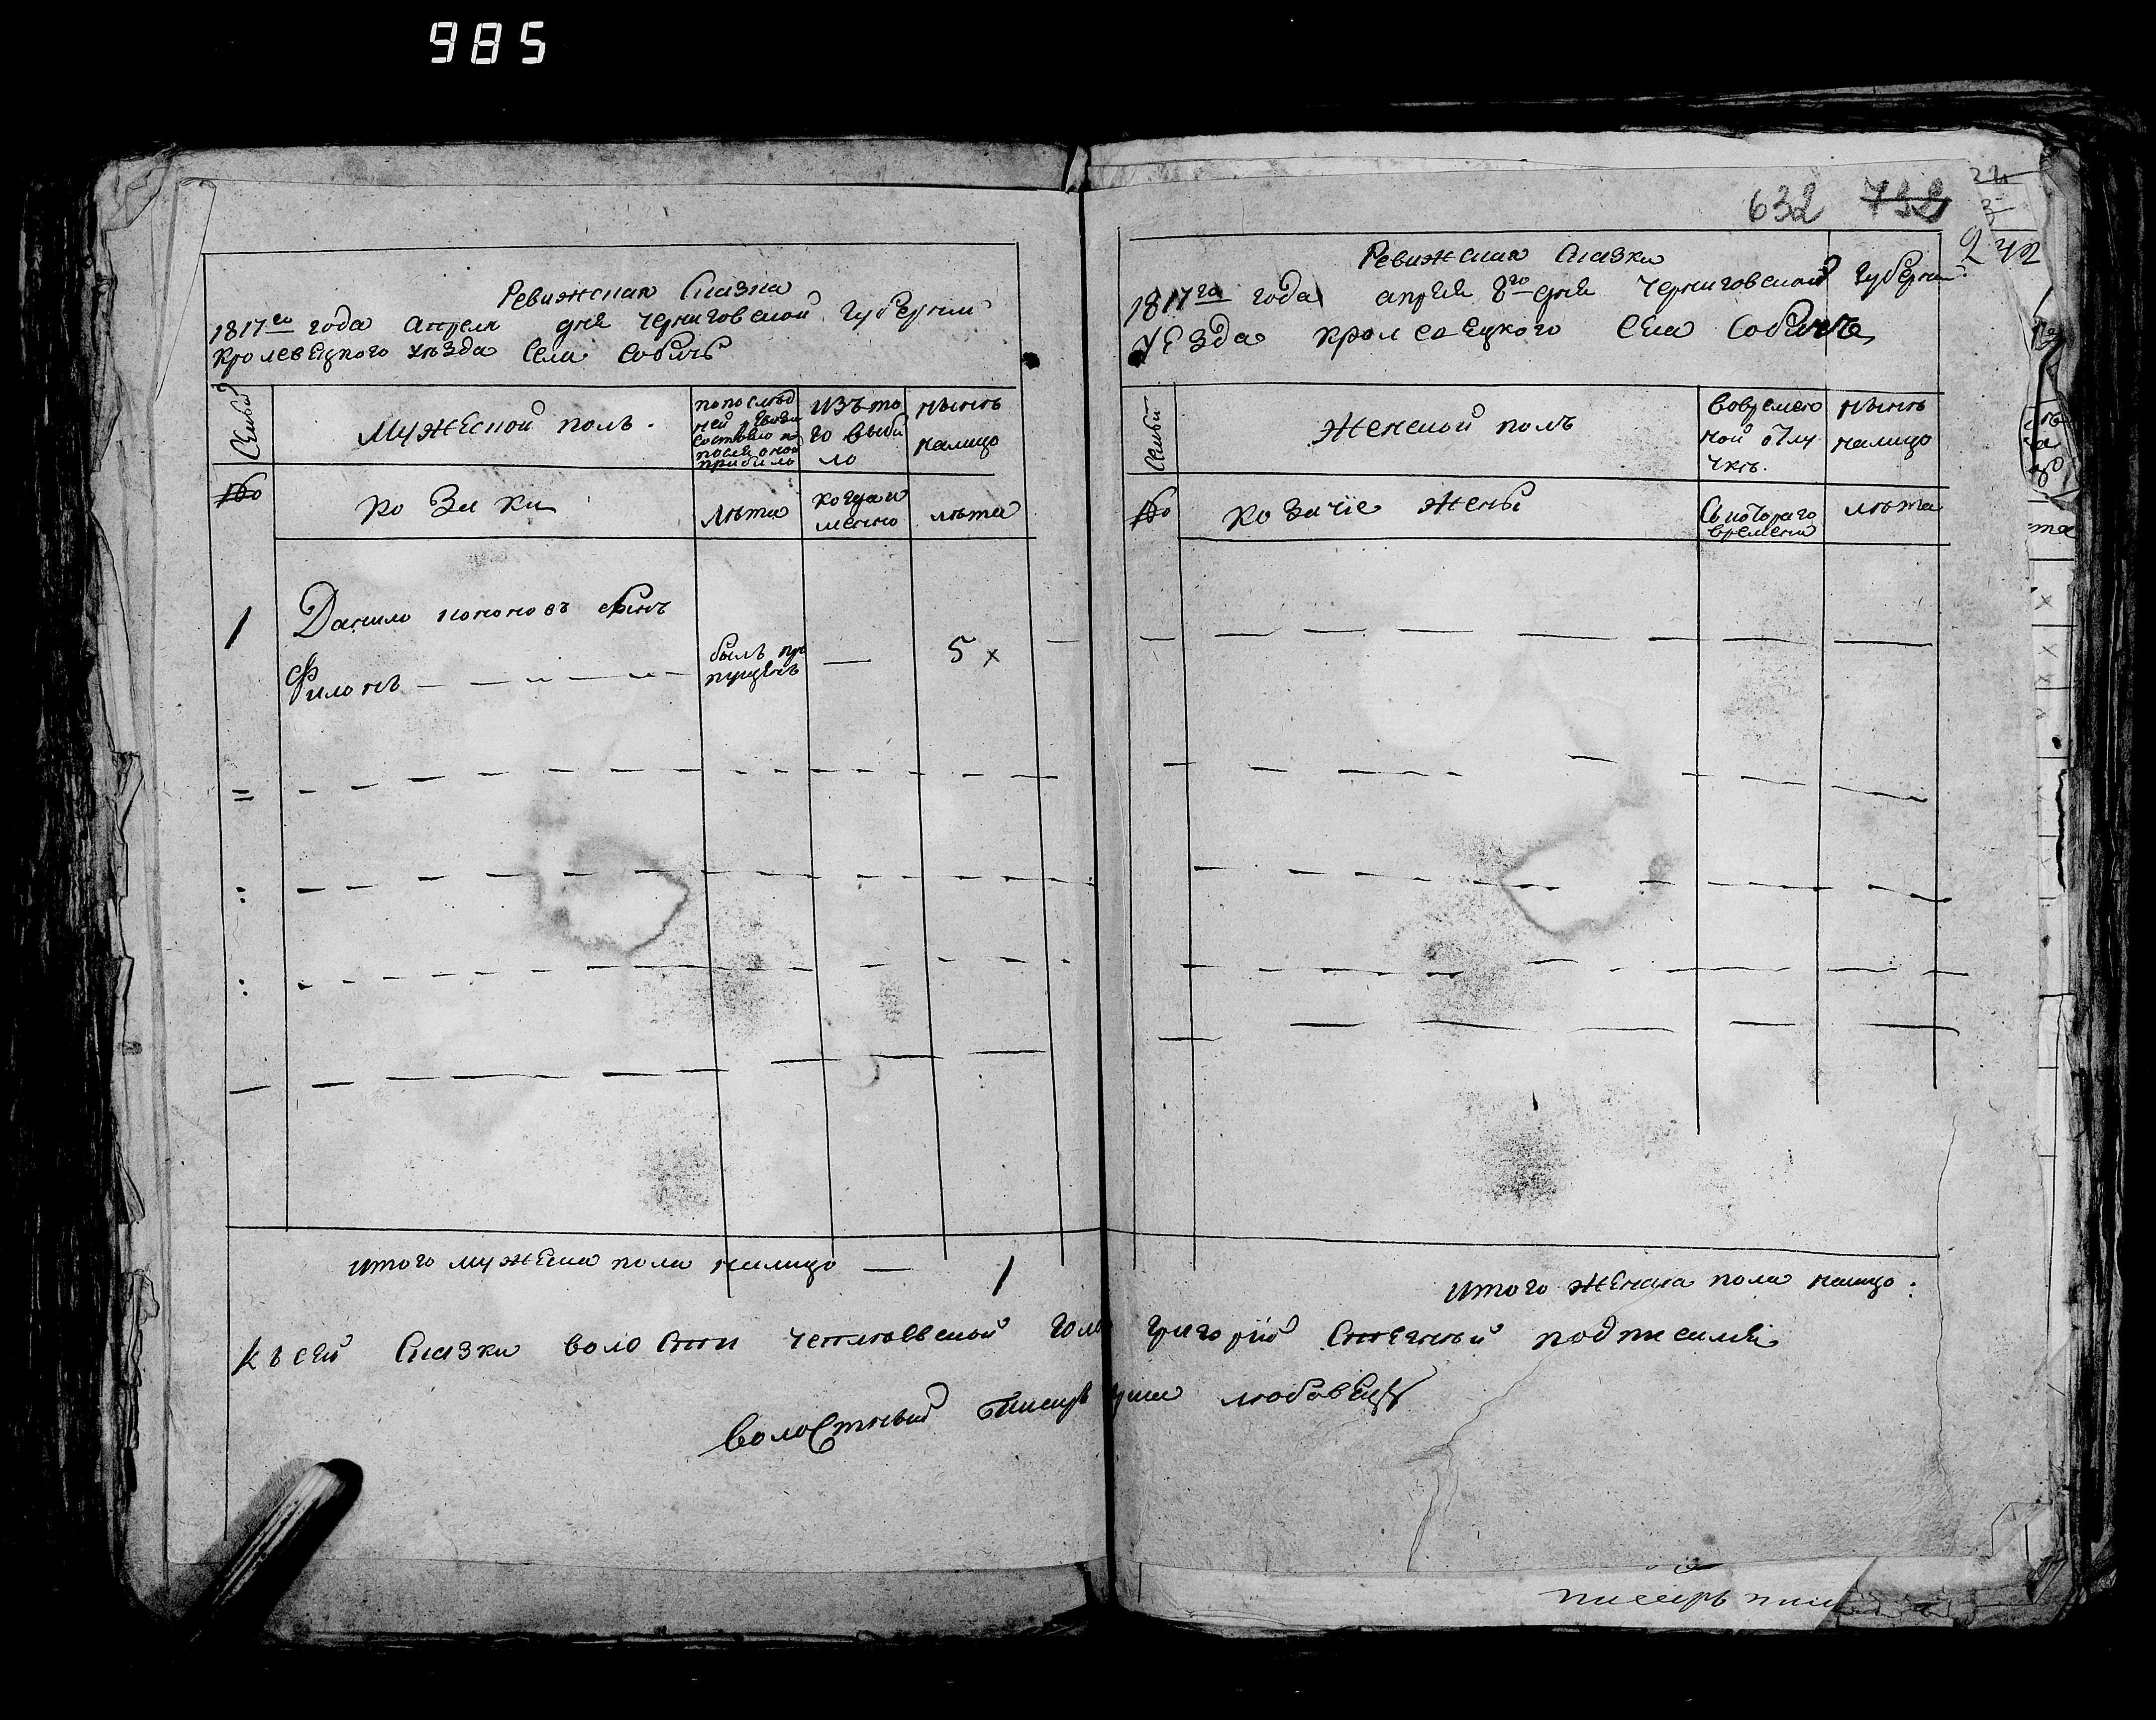 985
Ревижская Сказка
1817го года Апреля дня Черниговской Губернии
Кролевецкого уѣзда Села Собичь
Семьи
Мужеской полъ.
по послѣд
ней ревизи
состояло и
после оной
прибыло
изъ то
го выбы
ло
нынѣ
налицо
№о
козаки
лѣта
когда и
менно
лѣта
1
Данило Кононовъ сынъ
Филонъ
былъ пр
пущенъ
5 x
Итого мужеска пола налицо — 1
632 732
242
Ревижская Сказка
1817го года апреля 8го дня Черниговской Губернии
Уезда Кролевецкого Села Собичь
Семьи
Женской полъ
вовремен
ной отлу
чкѣ.
нынѣ
налицо
№о
козачіе жены
Съ котораго
времени
лѣта
Итого женска пола налицо:
К сей Сказки волости голо Григорій подписался
Волостный Писарь
писарь